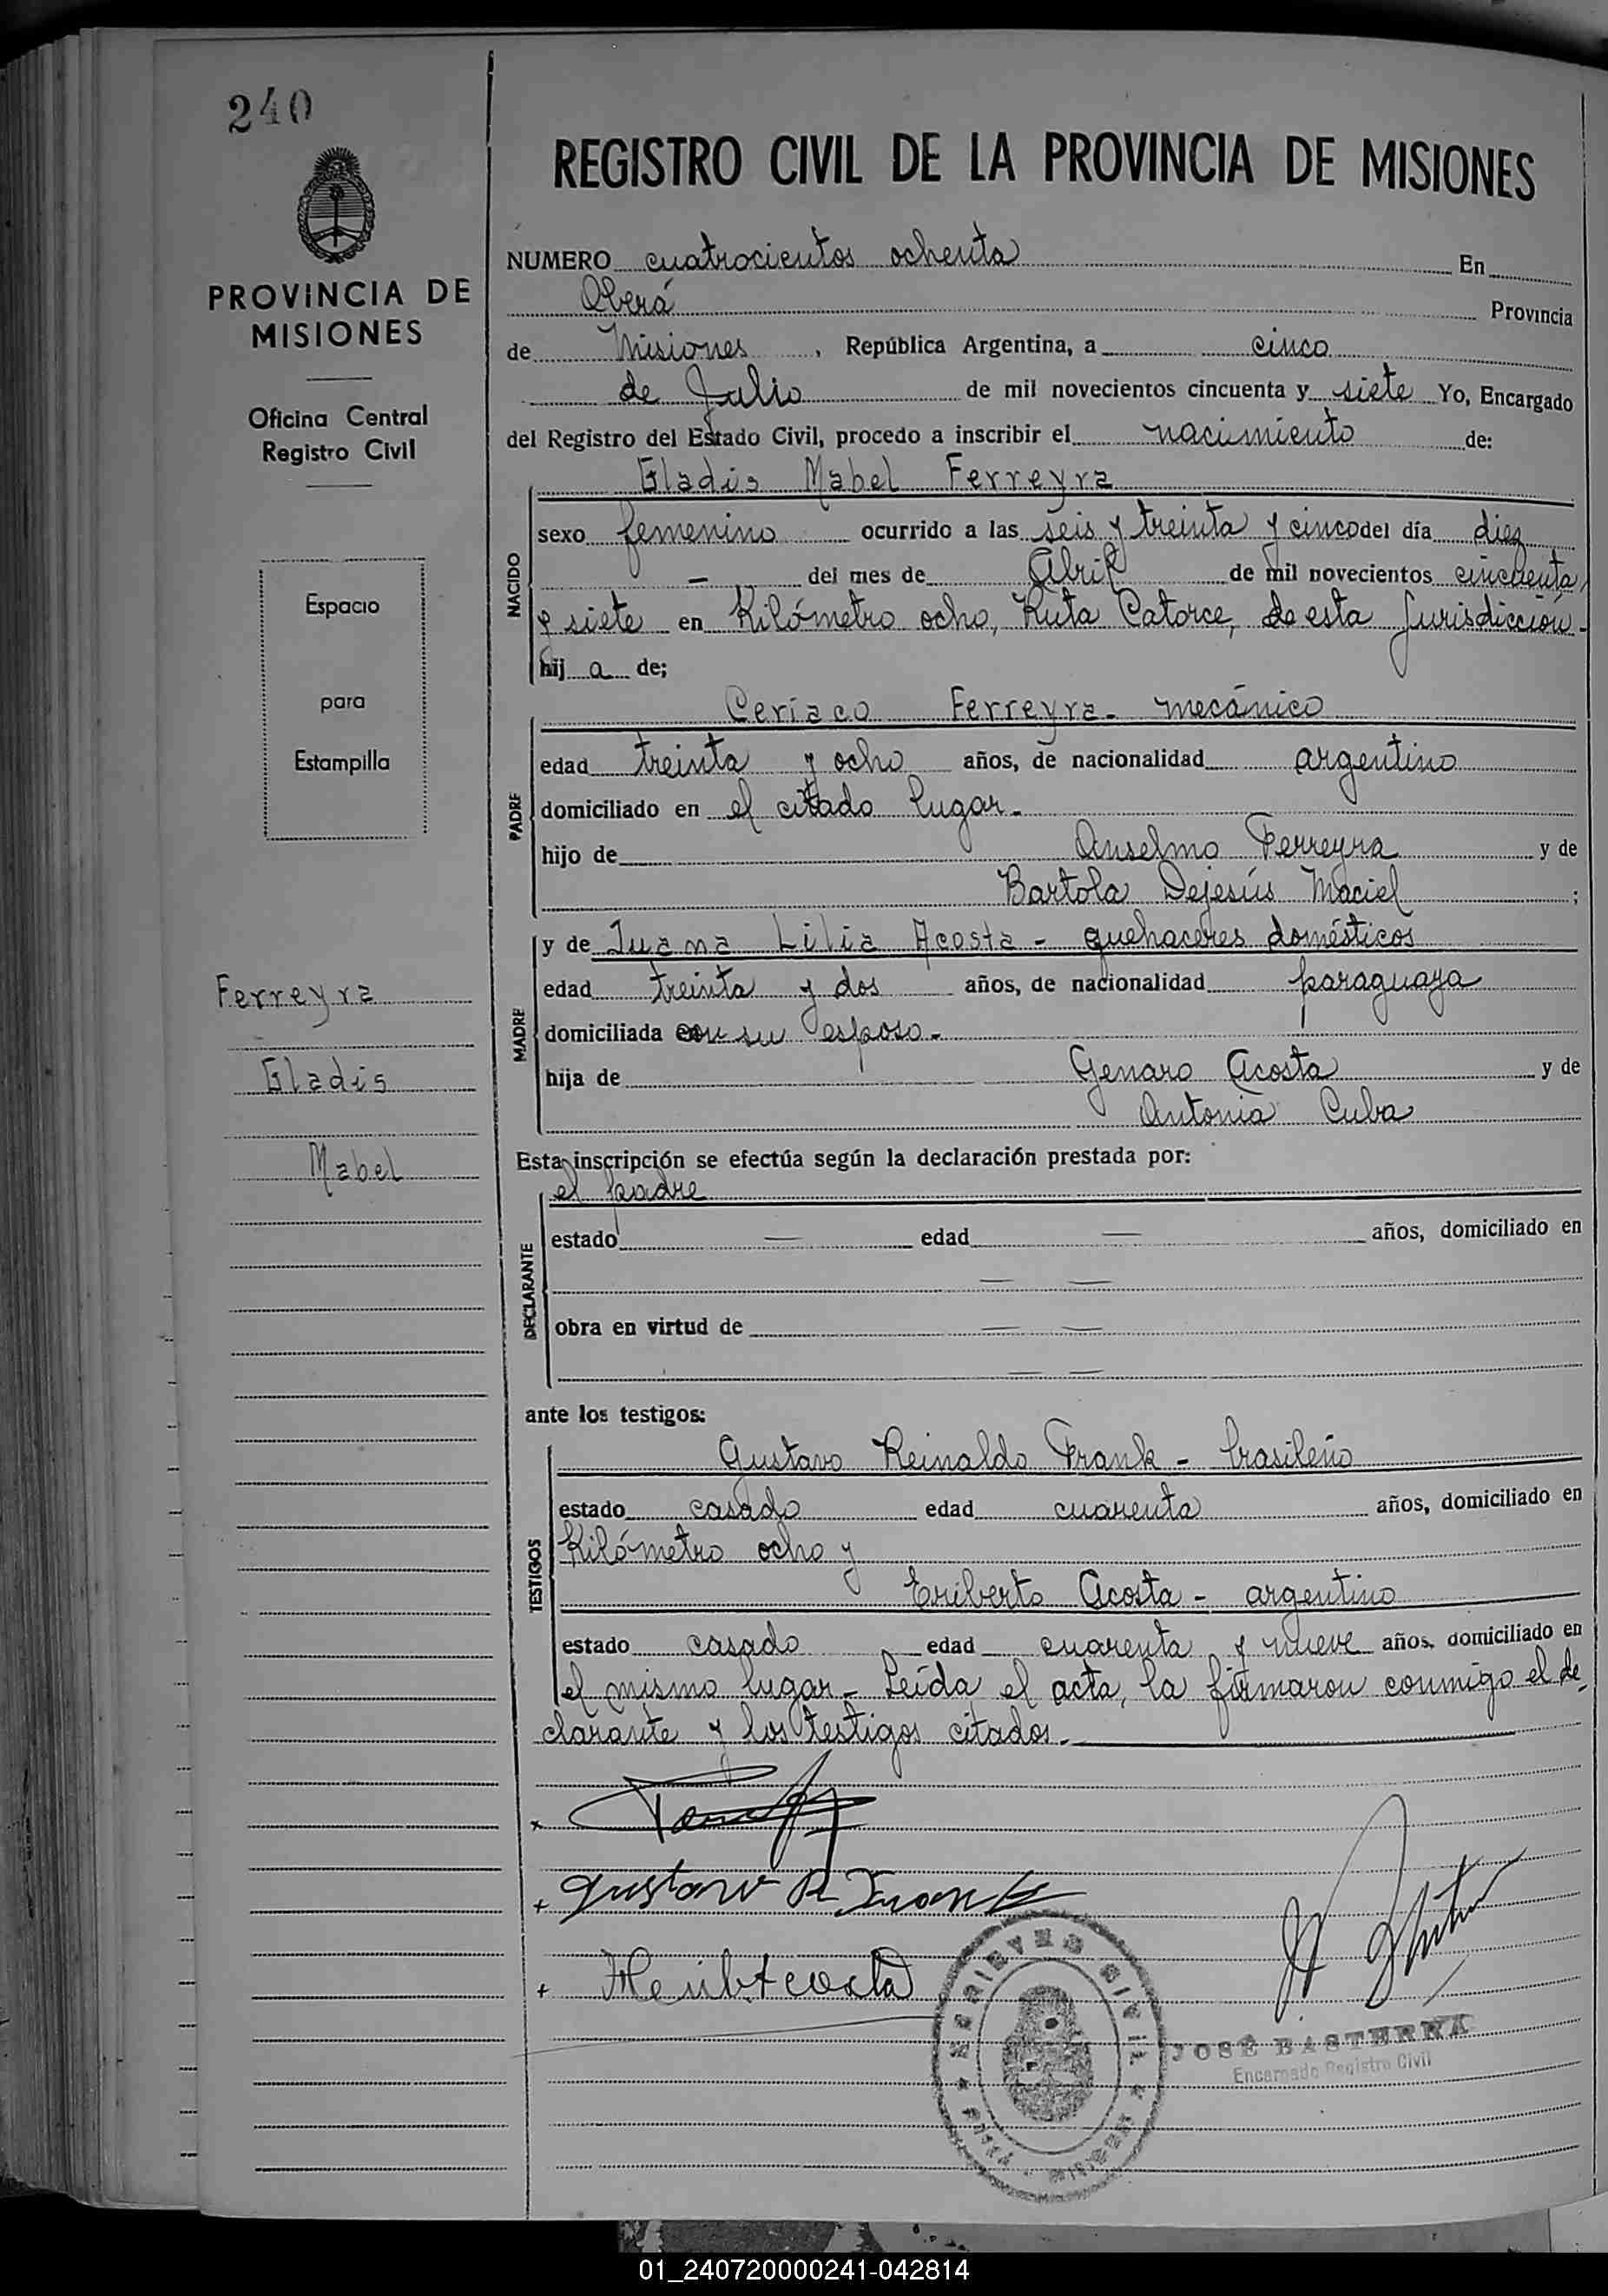 240
PROVINCIA DE
MISIONES
Oficina Central
Registro Civil
Espacio
para
Estampilla
Ferreyra
Gladis
Mabel
REGISTRO CIVIL DE LA PROVINCIA DE MISIONES
NUMERO cuatrocientos ochenta En
Oberá Provincia
de Misiones, República Argentina, a cinco
de Julio de mil novecientos cincuenta y siete Yo, Encargado
del Registro del Estado Civil, procedo a inscribir el nacimiento de:
Gladis Mabel Ferreyra
NACIDO
sexo femenino ocurrido a las seis y treinta y cinco del día diez
— del mes de Abril de mil novecientos cincuenta
y siete en Kilómetro ocho, Ruta Catorce, de esta Jurisdicción-
hij a de;
PADRE
Ceríaco Ferreyra- mecánico
edad treinta y ocho años, de nacionalidad argentino
domiciliado en el citado lugar-
hijo de Anselmo Ferreyra y de
Bartola Dejesús Maciel ;
MADRE
y de Juana Lilia Acosta - quehaceres domésticos
edad treinta y dos años, de nacionalidad paraguaya
domiciliada con su esposo-
hija de Genaro Acosta y de
Antonia Cuba
Esta inscripción se efectúa según la declaración prestada por:
DECLARANTE
el padre
estado — edad — años, domiciliado en
— —
obra en virtud de — —
— —
ante los testigos:
TESTIGOS
Gustavo Reinaldo Frank - brasileño
estado casado edad cuarenta años, domiciliado en
Kilómetro ocho y
Eriberto Acosta - argentino
estado casado edad cuarenta y nueve años, domiciliado en
el mismo lugar- Leída el acta, la firmaron conmigo el de-
clarante y los testigos citados.-
Gustavo R Frank
JOSÉ BASTERRA
Encargado Registro Civil
01_240720000241-042814